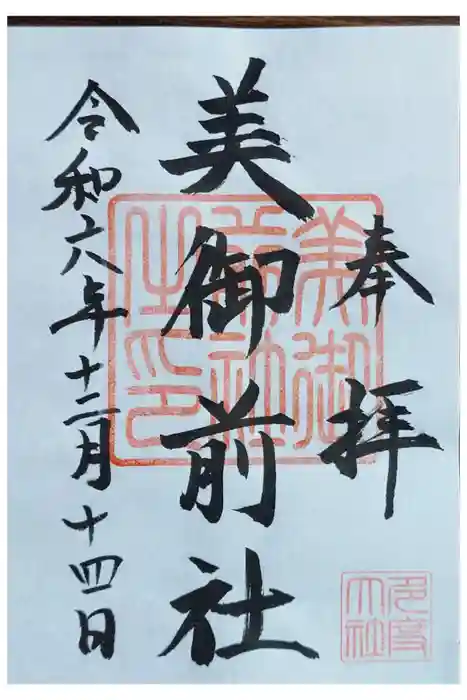 奉拝
美御前社
令和六年十二月十四日
美御前社之印